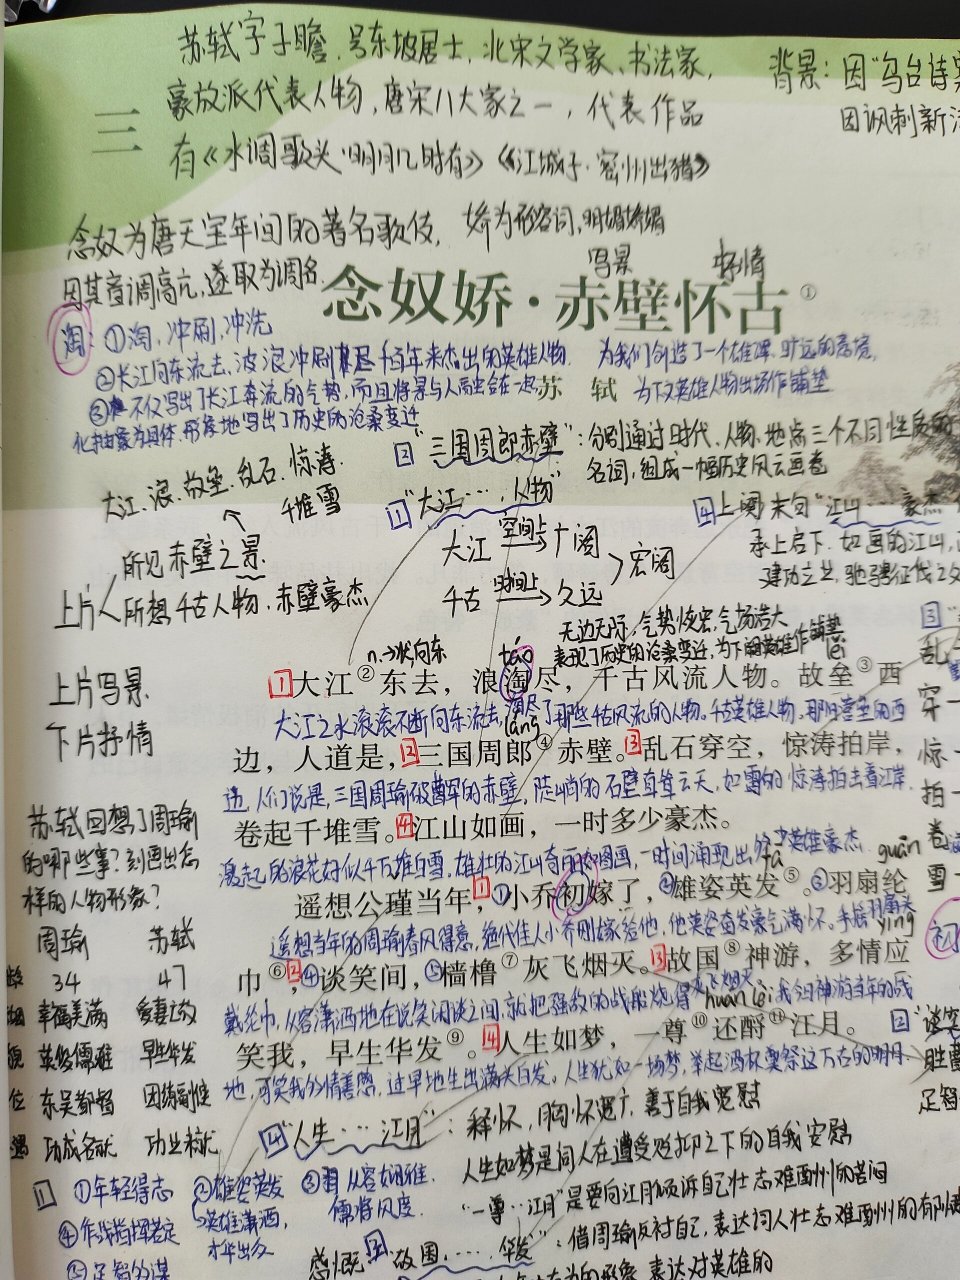 苏轼字子瞻，号东坡居士，北宋文学家、书法家，
豪放派代表人物，唐宋八大家之一，代表作品
有《水调歌头·明月几时有》《江城子·密州出猎》
背景：因"乌台诗案
因讽刺新法
三
念奴为唐天宝年间的著名歌伎，娇为形容词，明媚娇媚
因其音调高亢，遂取为调名
写景 抒情
念奴娇·赤壁怀古①
苏 轼
淘：①淘，冲刷，冲洗
②长江向东流去，波浪冲刷尽千百年来杰出的英雄人物. 为我们创造了一个雄浑、旷远的意境，
③不仅写出了长江奔流的气势，而且将景与人融会在一起 为下文英雄人物出场作铺垫
化抽象为具体，形象地写出了历史的沧桑变迁
2 "三国周郎赤壁"：分别通过时代、人物、地点三个不同性质的
名词，组成一幅历史风云画卷
大江、浪、故垒、乱石、惊涛、
千堆雪
1 "大江…，人物"
大江 空间上 广阔
千古 时间上 久远
宏阔
4 上阕末句"江山……豪杰
承上启下. 如画的江山，
上片
所见赤壁之景
所想千古人物、赤壁豪杰
上片写景
下片抒情
无边无际，气势恢宏，气场浩大
表现了历史的沧桑变迁，为下阕英雄作铺垫
n.→状 向东
táo
lěi
1大江②东去，浪淘尽，千古风流人物。故垒③西
大江之水滚滚不断向东流去，淘尽了那些千古风流的人物。千古英雄人物，那旧营垒的西
láng
边，人道是，2三国周郎④赤壁。3乱石穿空，惊涛拍岸，
边，人们说是，三国周瑜破曹军的赤壁，陡峭的石壁直耸云天，如雷的惊涛拍击着江岸，
卷起千堆雪。4江山如画，一时多少豪杰。
激起的浪花好似千万堆白雪，雄壮的江山奇丽如图画，一时间涌现出多少英雄豪杰.
guān
遥想公瑾当年，1①小乔初嫁了，②雄姿英发⑤。③羽扇纶
遥想当年的周瑜春风得意，绝代佳人小乔刚嫁给他，他英姿奋发豪气满怀。手摇羽扇头
yīng
巾⑥，2④谈笑间，⑤樯橹⑦灰飞烟灭。3故国⑧神游，多情应
戴纶巾，从容潇洒地在说笑闲谈之间，就把强敌的战船烧得灰飞烟灭，我今日神游当年的战
huán lèi
笑我，早生华发⑨。4人生如梦，一尊⑩还酹⑪江月。
地，可笑我多情善感，过早地生出满头白发。人生犹如一场梦，举起酒杯奠祭这万古的明月.
苏轼回想了周瑜
的哪些事？刻画出怎
样的人物形象？
周瑜 苏轼
34 47
幸福美满 爱妻亡故
英俊儒雅 早生华发
东吴都督 团练副使
功成名就 功业未就
3
乱
穿
惊
拍
卷
雪
2 "谈笑
足智
4 "人生…江月"：释怀，胸怀宽广，善于自我宽慰
人生如梦是词人在遭受贬抑之下的自我安慰
"一尊…江月"是要向江月倾诉自己壮志难酬的苦闷
1 ①年轻得志 ②雄姿英发 ③从容娴雅.
英雄潇洒， 儒将风度.
④作战指挥若定 才华出众
⑤足智多谋
3 "故国，……，华发"：借周瑜反衬自己，表达词人壮志难酬
感慨